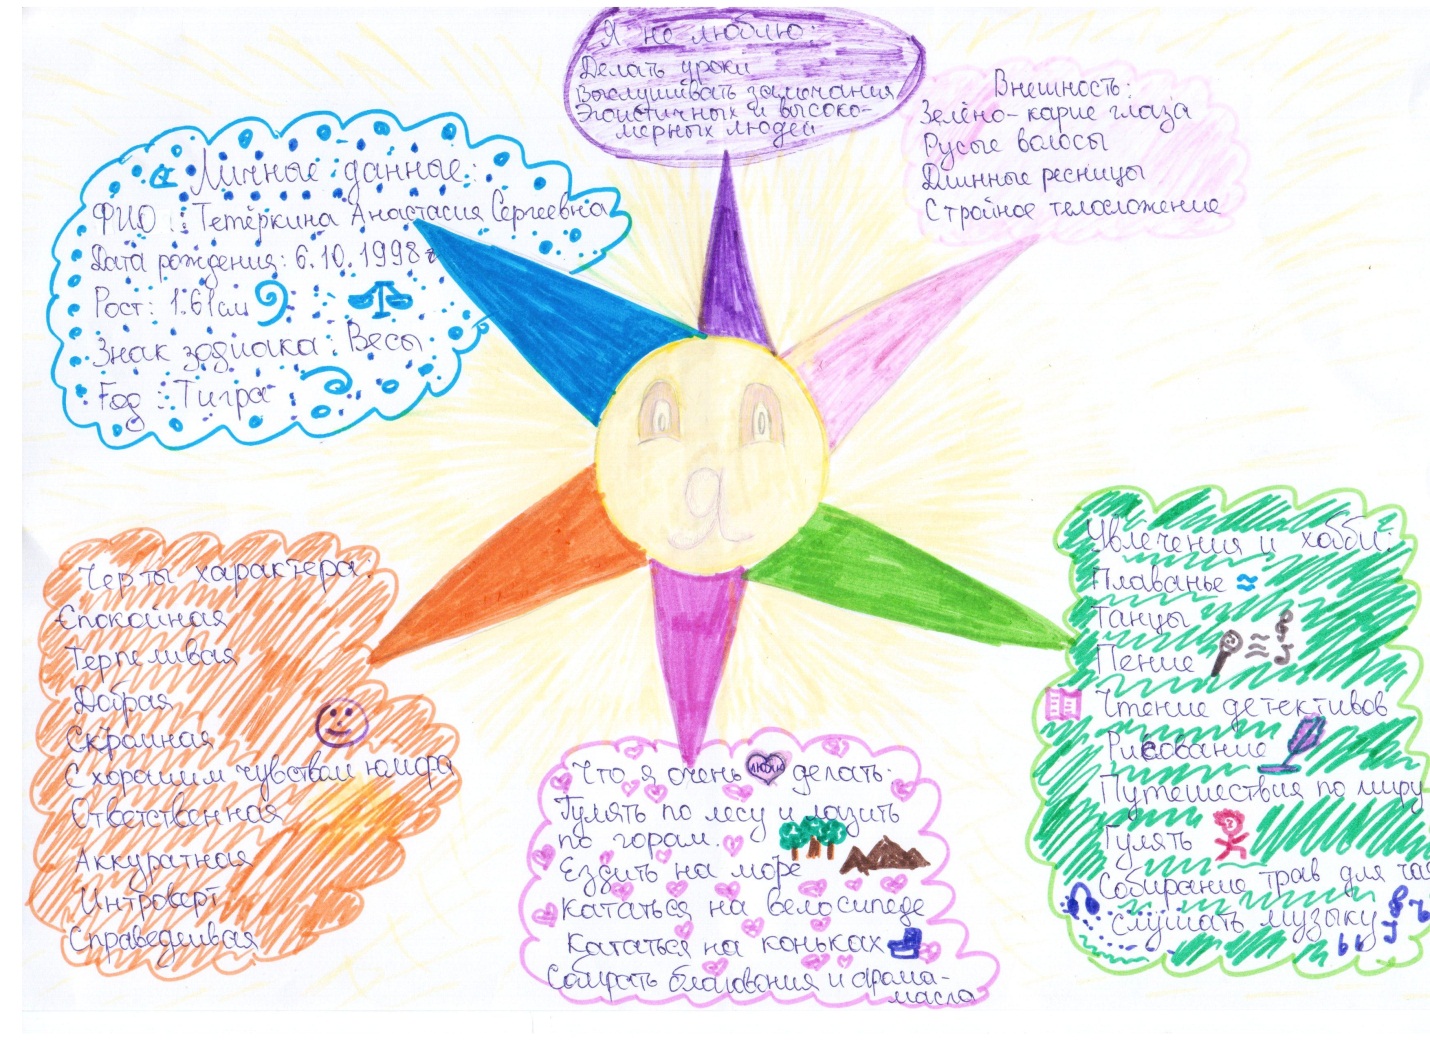 Я не люблю:
Делать уроки
Выслушивать замечания,
Эгоистичных и высоко-
мерных людей
Внешность:
Зелёно-карие глаза
Русые волосы
Длинные ресницы
Стройное телосложение
Личные данные:
ФИО: Тетёркина Анастасия Сергеевна
Дата рождения: 6.10.1998г
Рост: 1.61см
Знак зодиака: Весы
Год: Тигра
Я
Черты характера:
Спокойная
Терпеливая
Добрая
Скромная
С хорошим чувством юмора
Ответственная
Аккуратная
Интроверт
Справедливая
Что я очень люблю делать:
Гулять по лесу и лазить
по горам.
Ездить на море
Кататься на велосипеде
Кататься на коньках
Собирать благовония и арома-
масла
Увлечения и хобби:
Плаванье
Танцы
Пение
Чтение детективов
Рисование
Путешествия по миру
Гулять
Собирание трав для чая
Слушать музыку